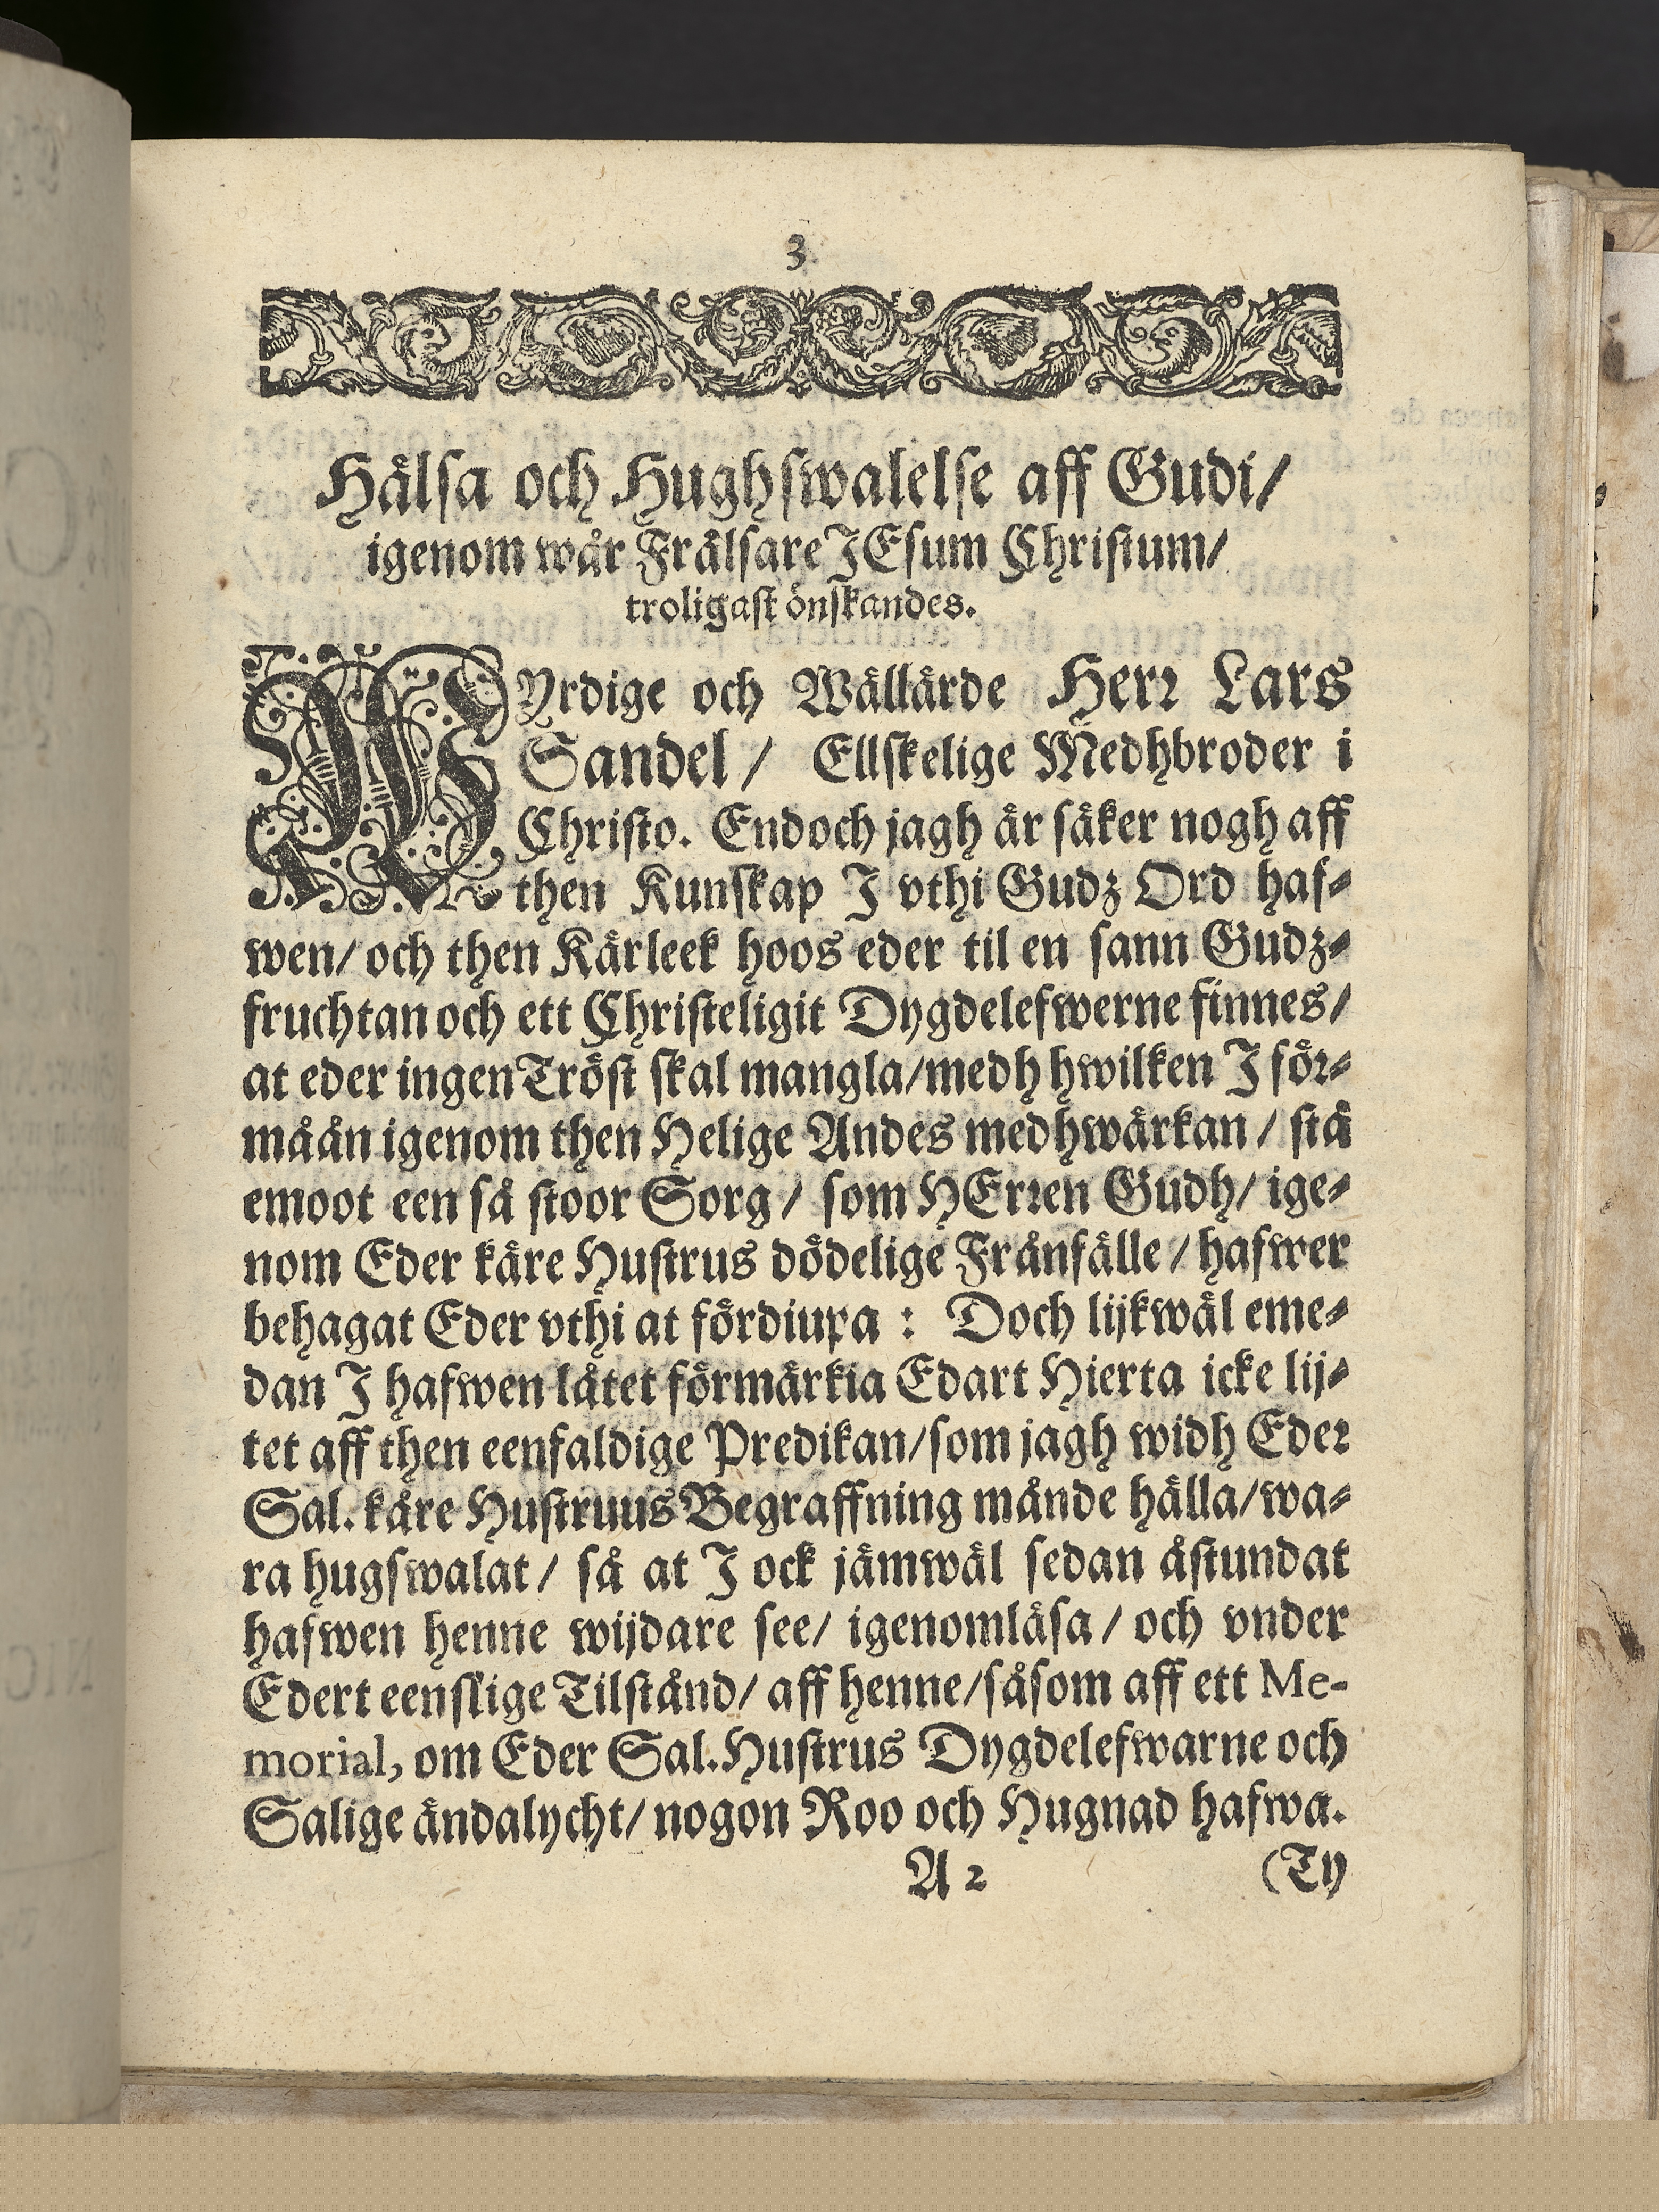 3
Hälsa och Hughswalelse aff Gudi/
igenom wår Frälsare JEsum Christum/
troligast önskandes.
WYrdige och Wällärde Herr Lars
Sandel / Ellskelige Medhbroder i
Christo. Endoch jagh är säker nogh aff
then Kunskap J vthi Gudz Ord haf-
wen/ och then Kärleek hoos eder til en sann Gudz-
fruchtan och ett Christeligit Dygdelefwerne finnes/
at eder ingen Tröst skal mangla/medh hwilken J för-
måån igenom then Helige Andes medhwärkan / stå
emoot een så stoor Sorg / som HErren Gudh/ ige-
nom Eder käre Hustrus dödelige Frånfälle / hafwer
behagat Eder vthi at fördiupa : Doch lijkwäl eme-
dan J hafwen låtet förmärkia Edart Hierta icke lij-
tet aff then eenfaldige Predikan/som jagh widh Eder
Sal. käre Hustruus Begraffning månde hälla/wa-
ra hugswalat / så at J ock jämwäl sedan åstundat
hafwen henne wijdare see/ igenomläsa / och vnder
Edert eenslige Tilstånd/ aff henne/såsom aff ett Me-
morial, om Eder Sal. Hustrus Dygdelefwarne och
Salige ändalycht/ nogon Roo och Hugnad hafwa.
A 2 (Ty